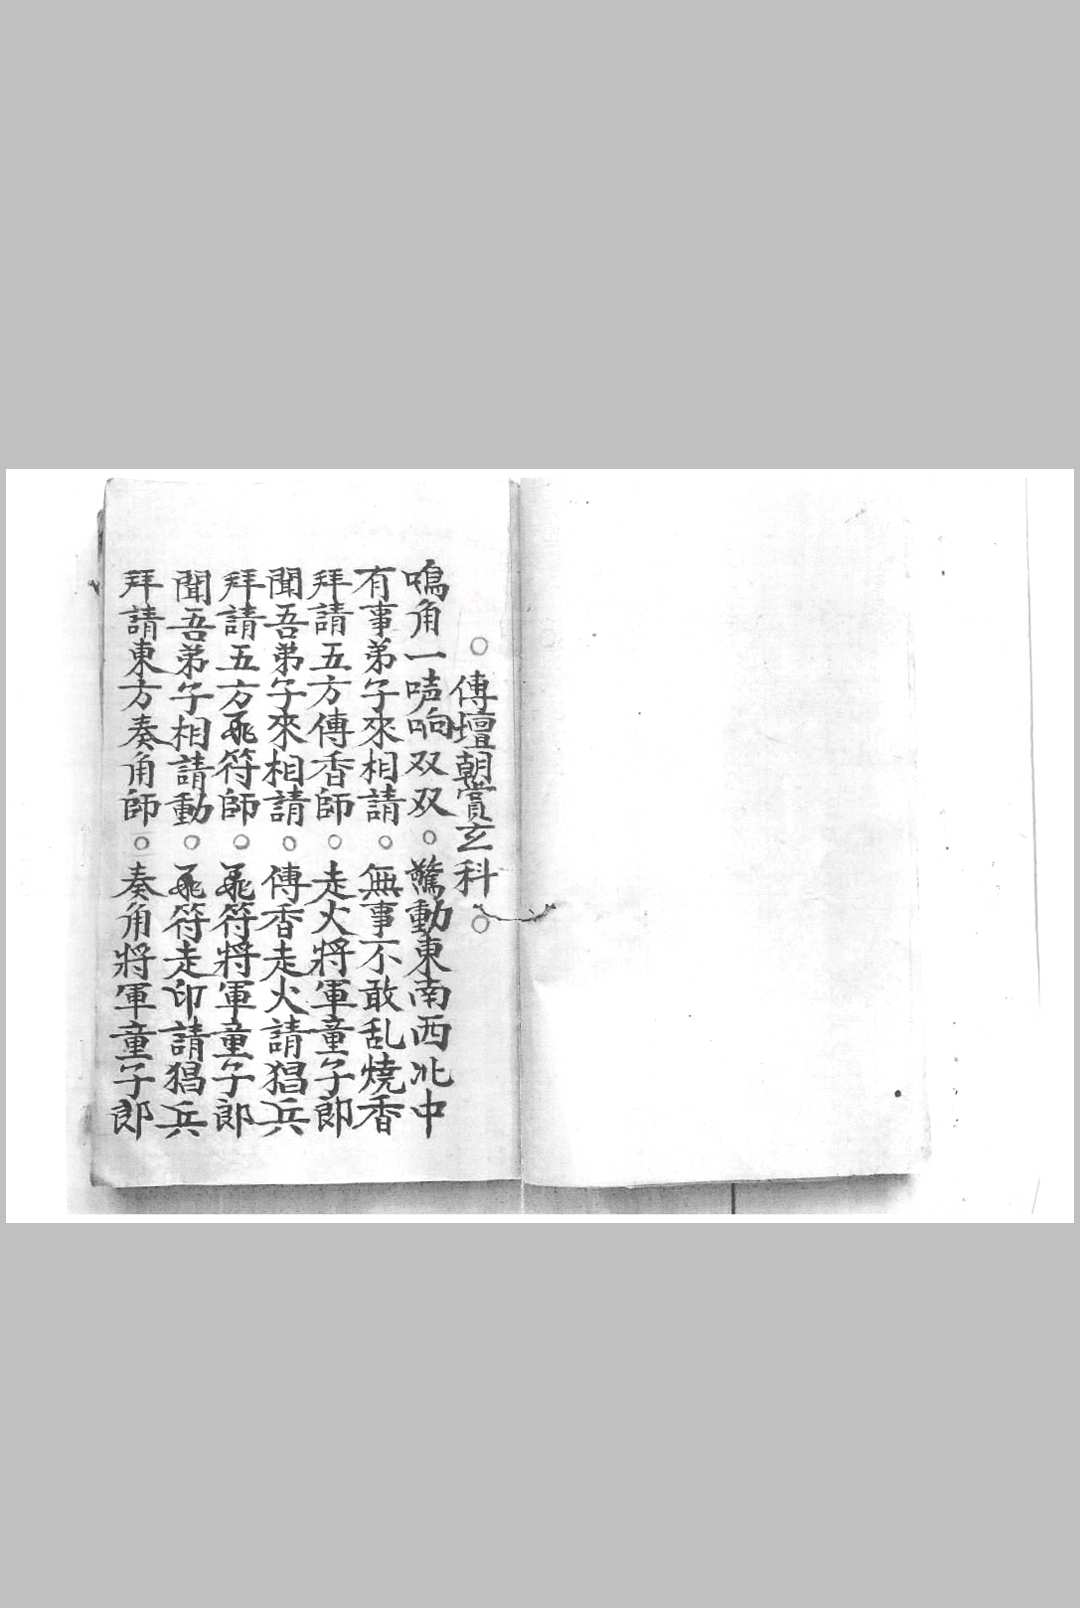 ○傳壇朝賞玄科○
鳴角一咭响双双○驚動東南西北中
有事弟子來相請○無事不敢乱燒香
拜請五方傳香師○走火將軍童子郎
聞吾弟子來相請○傳香走火請猖兵
拜請五方飛符師○飛符將軍童子郎
聞吾弟子相請動○飛符走印請猖兵
拜請東方奏角師○奏角將軍童子郎